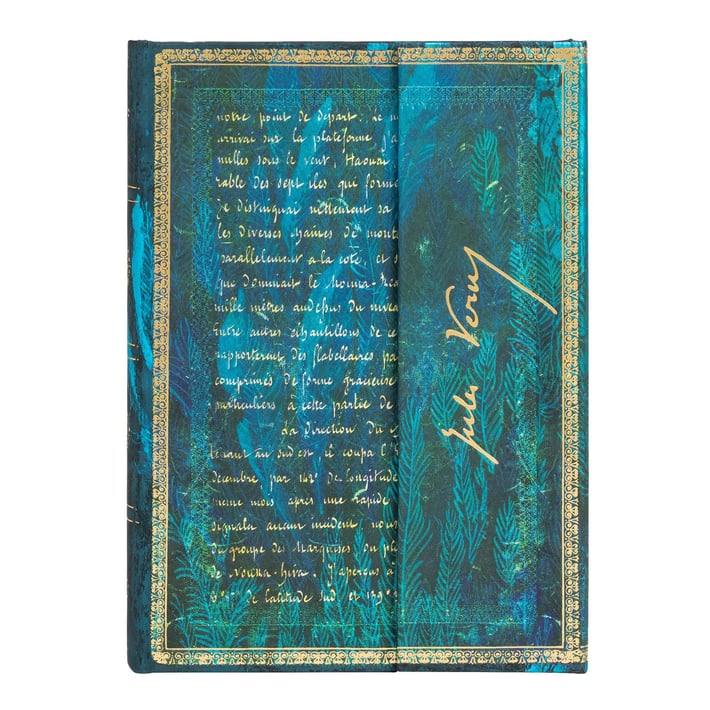 notre point de départ. Le m
arrivai sur la plateforme J'a
milles sous le vent, Haouai
rable des sept iles qui forme
Je distinguai nettement sa
les diverses chaines de mont
parallelement a la coté, et s
que dominait le Mouna-Rea
mille mètres audessus du nivea
Entre autres échantillons de ce
rapporterent des flabellaires, pa
comprimés de forme gracieuse
particuliers à cette partie de
La direction du
tenant au sud est, il coupa l'E
décembre, par 142° de longitude
meme mois après une rapide
signala aucun incident, nous
du groupe des Marquises,
de Nouka-hiva. J'aperçus a
de latitude sud et 139°
Jules Verne